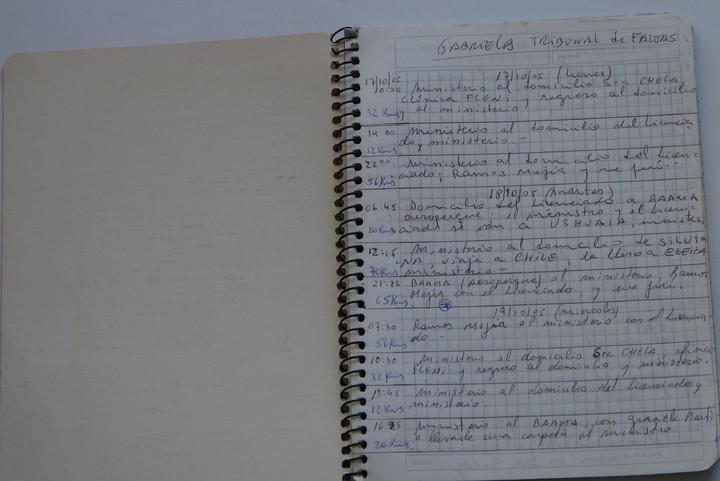 GABRIELA TRIBUNAL de FALTAS
17/10/05 17/10/05 (lunes)
Ministerio al domicilio Sra CHELA,
clínica FLENI y regreso al domicilio
32 Kms al ministerio,
14:00 Ministerio al domicilio del licencia-
12 Kms do y ministerio.-
22:00 Ministerio al domicilio del licen-
56 Kms ciado; Ramos Mejia y me fuí.-
18/10/05 (martes)
06:45 Domicilio del licenciado a BAAMA
aeroparque; el ministro y el licen-
20 Kms ciado se van a USHUAIA, ministerio
Ministerio al domicilio de SILVI
NA viaja a CHILE, la llevo a EZEIZA
70 Kms ministerio.-
21:25 BAAMA (aeroparque) al ministerio, Ramos
65 Kms Mejia con el licenciado, y me fuí.
19/10/05
07:30 Ramos Mejia al ministerio con el licencia
56 Kms do.-
10:30 Ministerio al domicilio Sra CHELA,
32 Kms FLENI y regreso al domicilio y ministerio.
13:45 Ministerio al domicilio del licenciado y
12 Kms ministerio.
Ministerio al BAAMA, con
20 Kms a llevarle una carpeta al ministro